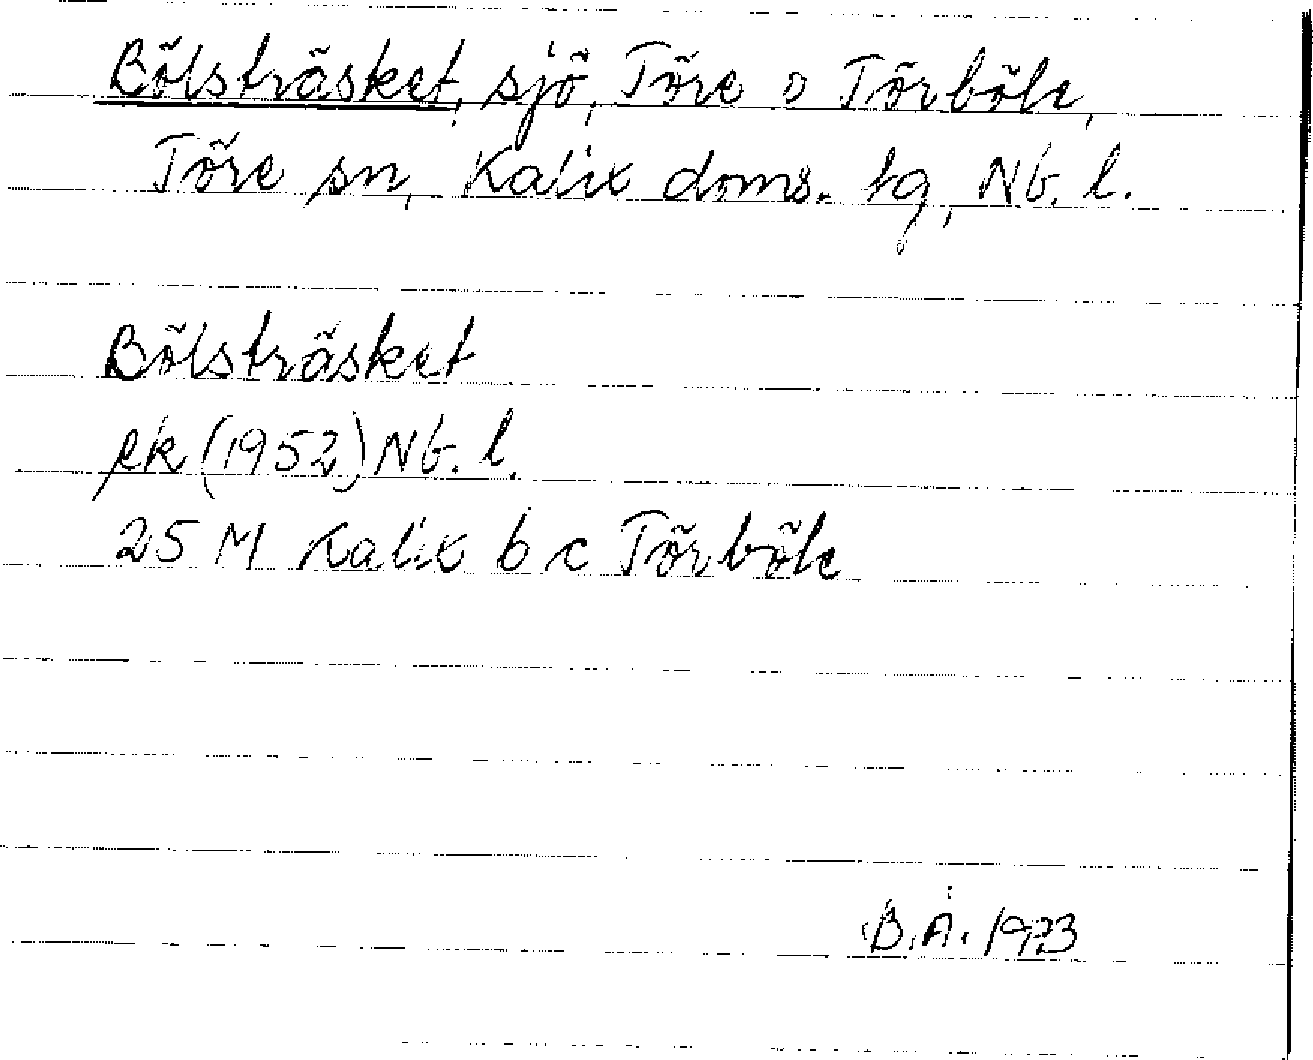 Bölsträsket, sjö, Töre o Törböle,
Töre sn, Kalix doms. tg, Nb. l.
Bölsträsket
ek (1952) Nb. l.
25 M Kalix b c Törböle
B.Å. 1973